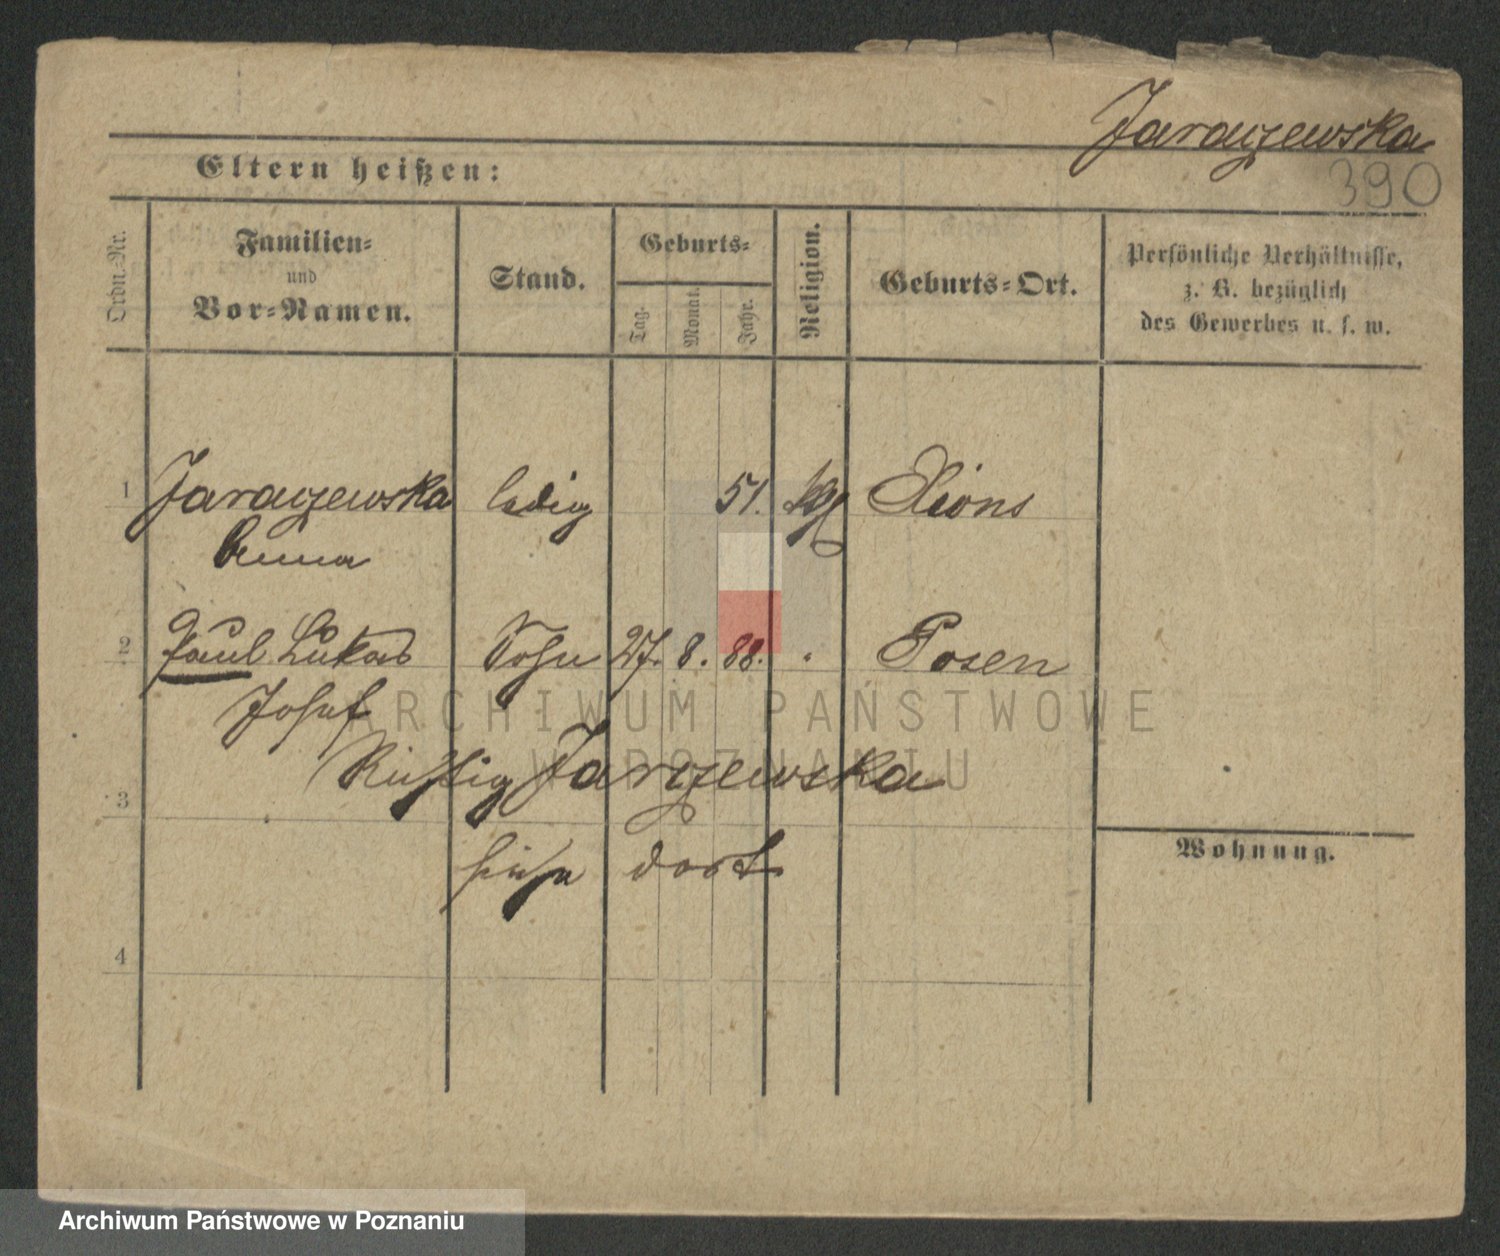 Jaraczewska
390
Eltern heißen:
Ordn.-Nr.
Familien-
und
Vor-Namen.
Stand.
Geburts-
Tag.
Monat.
Jahr.
Religion.
Geburts-Ort.
Persönliche Verhältnisse,
z. B. bezüglich
des Gewerbes u. s. w.
1 Jaraczewska ledig 51. kath Xions
Anna
2 Paul Lukas Sohn 27. 8. 88. . Posen
Josef
ARCHIWUM PAŃSTWOWE
W POZNANIU
Richtig Jarczewska
3
siehe dort
Wohnung.
4
Archiwum Państwowe w Poznaniu